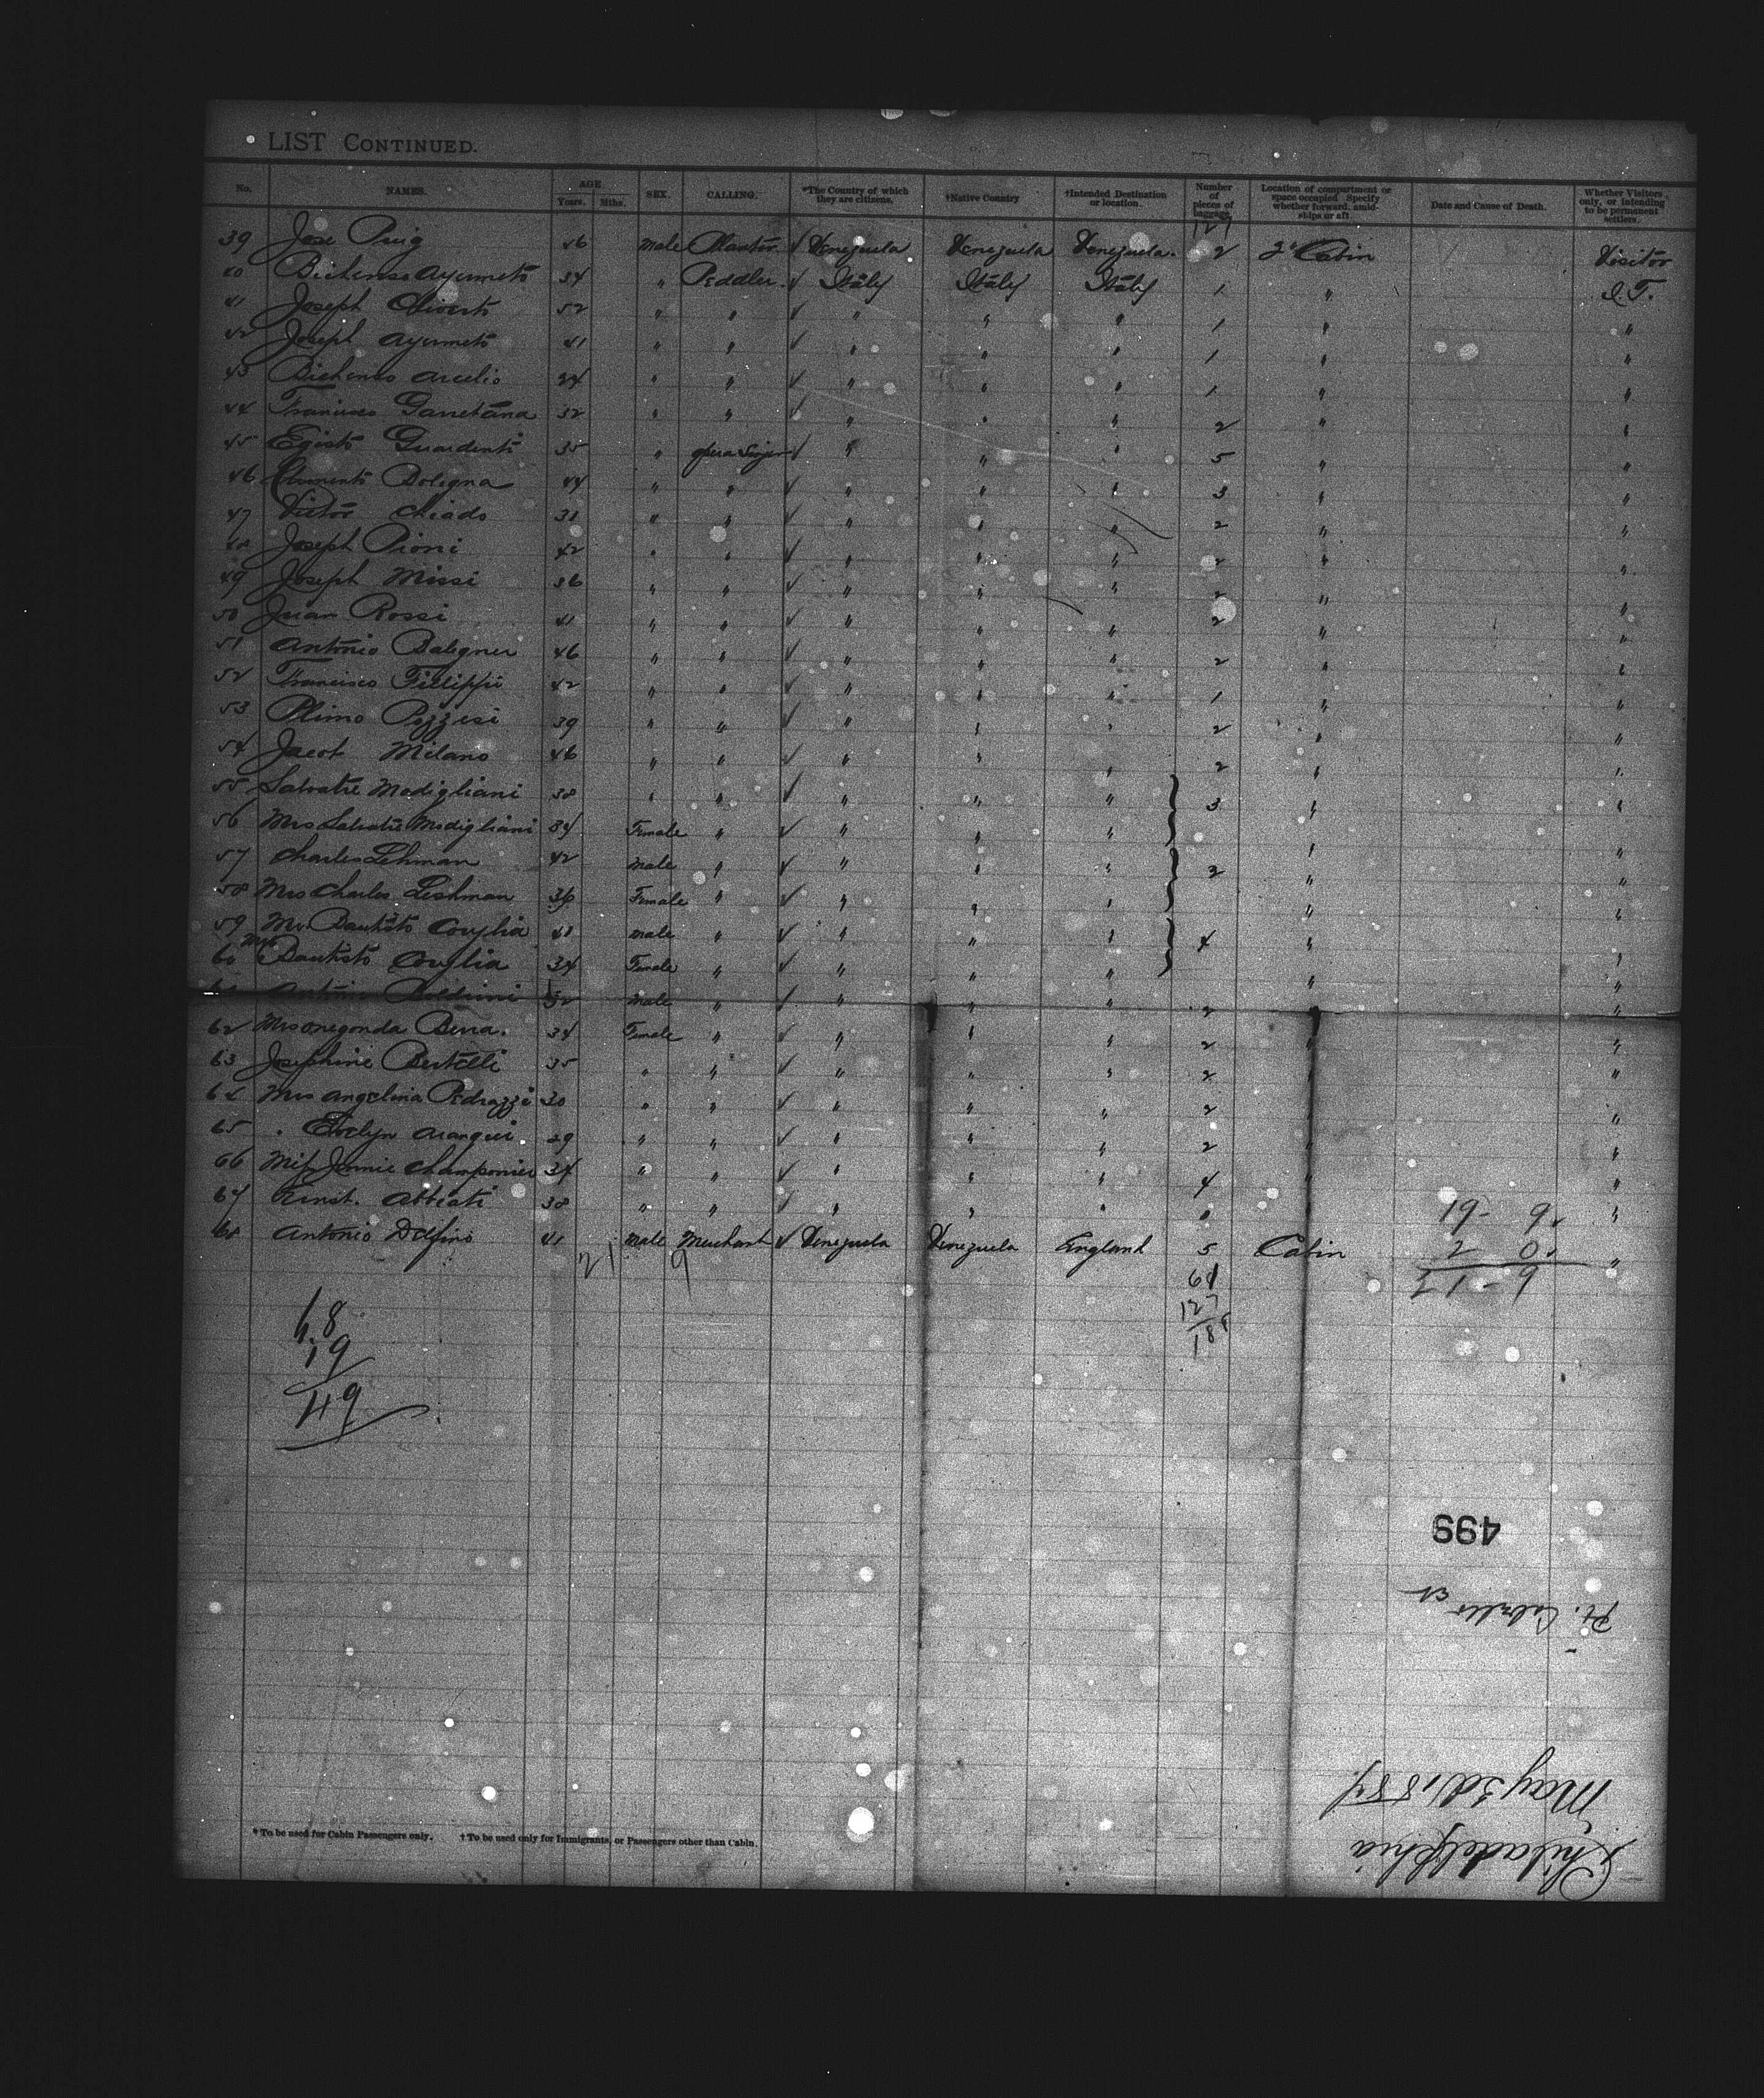 LIST CONTINUED.
No. NAMES. AGE Years. Mths. SEX. CALLING. *The Country of which they are citizens. †Native Country †Intended Destination or location. Number of pieces of baggage. Location of compartment or space occupied Specify whether forward, amidships or aft Date and Cause of Death. Whether Visitors only, or intending to be permanent settlers.
127
39 Jose Puig 46 male Planter ✓ Venezuela Venezuela Venezuela. 2 2d Cabin Visitor
40 34 " Peddler. ✓ Italy Italy Italy 1 " I.T.
41 Joseph 52 " " ✓ " " " 1 " "
42 Joseph Ayumeto 41 " " ✓ " " " 1 " "
43 Arcelio 24 " " ✓ " " " 1 " "
44 Francisco 32 " " ✓ " " " 2 " "
45 Egisto Guardenti 35 " opera Singer ✓ " " " 5 " "
46 Clemento Bologna 44 " " ✓ " " " 3 " "
47 Victor Chiado 31 " " ✓ " " " 2 " "
48 Joseph Pioni 42 " " ✓ " " " 2 " "
49 Joseph Missi 36 " " ✓ " " " 2 " "
50 Juan Rossi 41 " " ✓ " " " 2 " "
51 Antonio 46 " " ✓ " " " 2 " "
52 Francisco Fillippi 42 " " ✓ " " " 1 " "
53 Plimo Pozzesi 39 " " ✓ " " " 2 " "
54 Jacob Milano 46 " " ✓ " " " 2 " "
55 Salvatre Modigliani 38 " " ✓ " " " 3 " "
56 Mrs Salvatre Modigliani 34 Female " ✓ " " " " "
57 Charles Lehman 42 male " ✓ " " " 3 " "
58 Mrs Charles Leshman 36 Female " ✓ " " " " "
59 Mr. Bautisto Couylia 41 male " ✓ " " " 4 " "
60 Mrs Bautisto Couylia 34 Female " ✓ " " " " "
61 Antonio Boldrini 52 male " ✓ " " " 2 "
62 Mrs Onegonda Berra. 34 Female " ✓ " " " 2 " "
63 Josephine Bertelli 35 " " ✓ " " " 2 " "
64 Mrs Angelina Pedrazzi 30 " " ✓ " " " 2 "
65 " Evelyn Arangui 29 " " ✓ " " " 2 " "
66 Miss Jennie Champonier 34 " " ✓ " " " 4 " "
67 Ernst. Abbiati 38 " " ✓ " " " "
68 Antonio Delfino 41 male Merchant ✓ Venezuela Venezuela England 5 Cabin "
21 9
19 - 9
2 0
21 - 9
61
127
188
68
19
49
499
Pt. Cabello
May 3d 1887.
Philadelphia
* To be used for Cabin Passengers only. † To be used only for Immigrants, or Passengers other than Cabin.